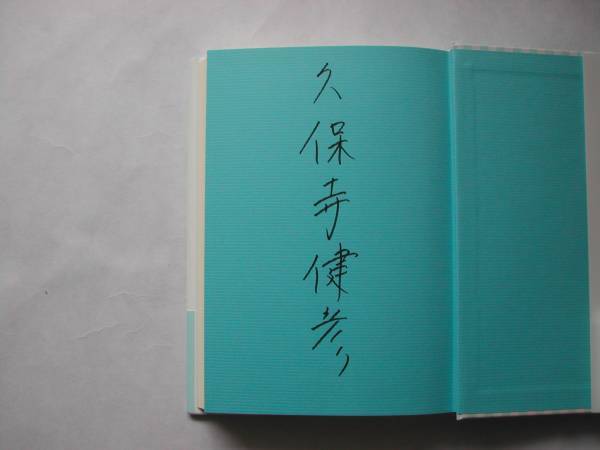 久保寺健彦